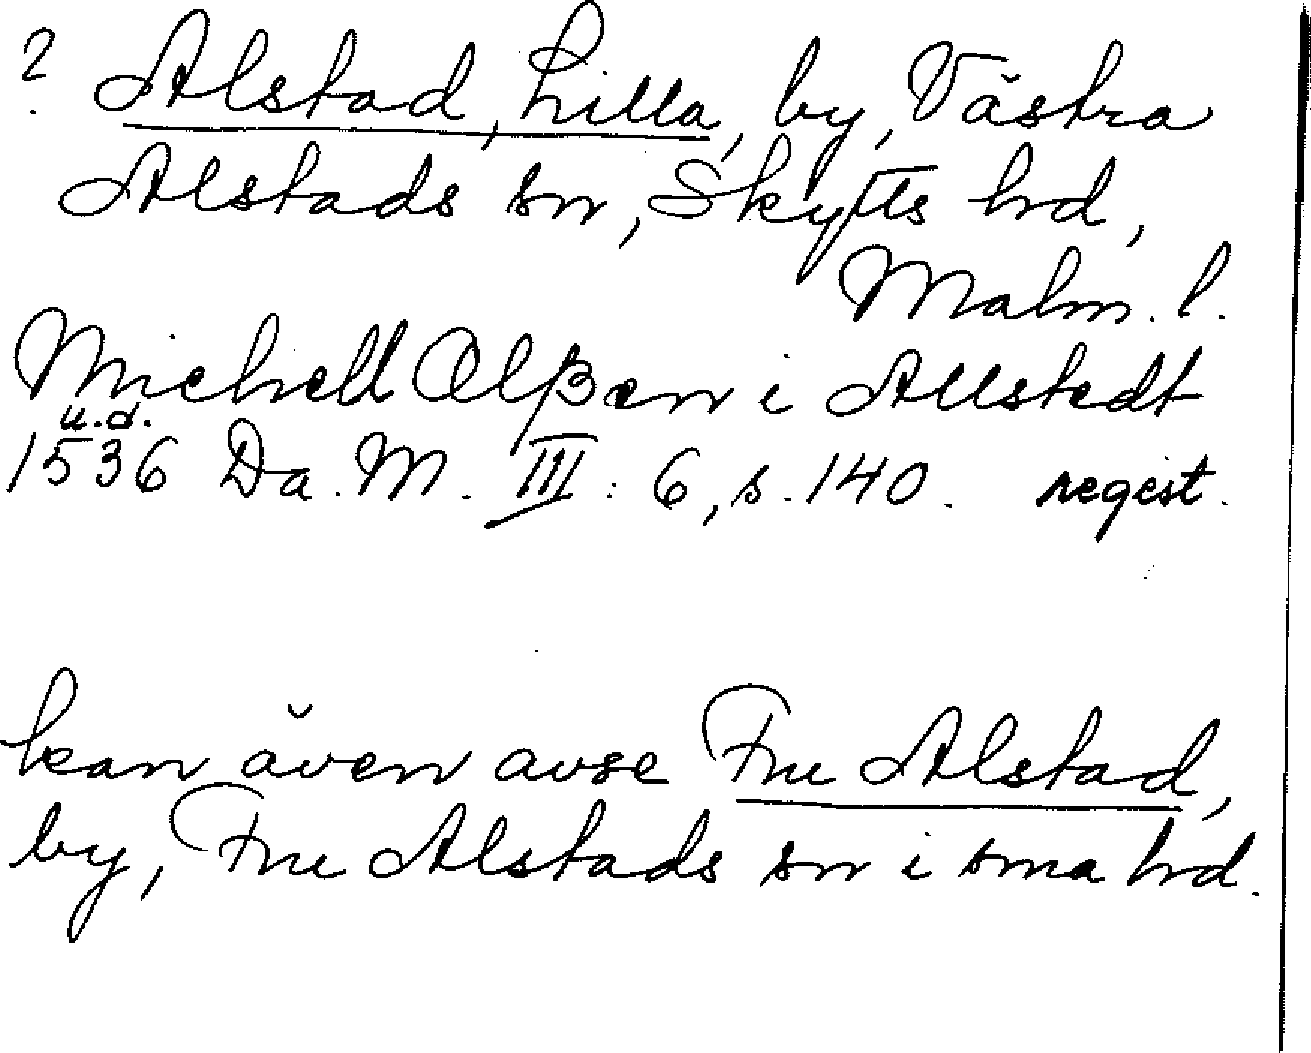 ? Alstad, Lilla, by, Västra
Alstads sn, Skytts hrd,
Malm. l.
Michell Olßen i Allstedt
u.d.
1536 Da. M. III : 6, s. 140. regest.
kan även avse Fru Alstad,
by, Fru Alstads sn i sma hrd.